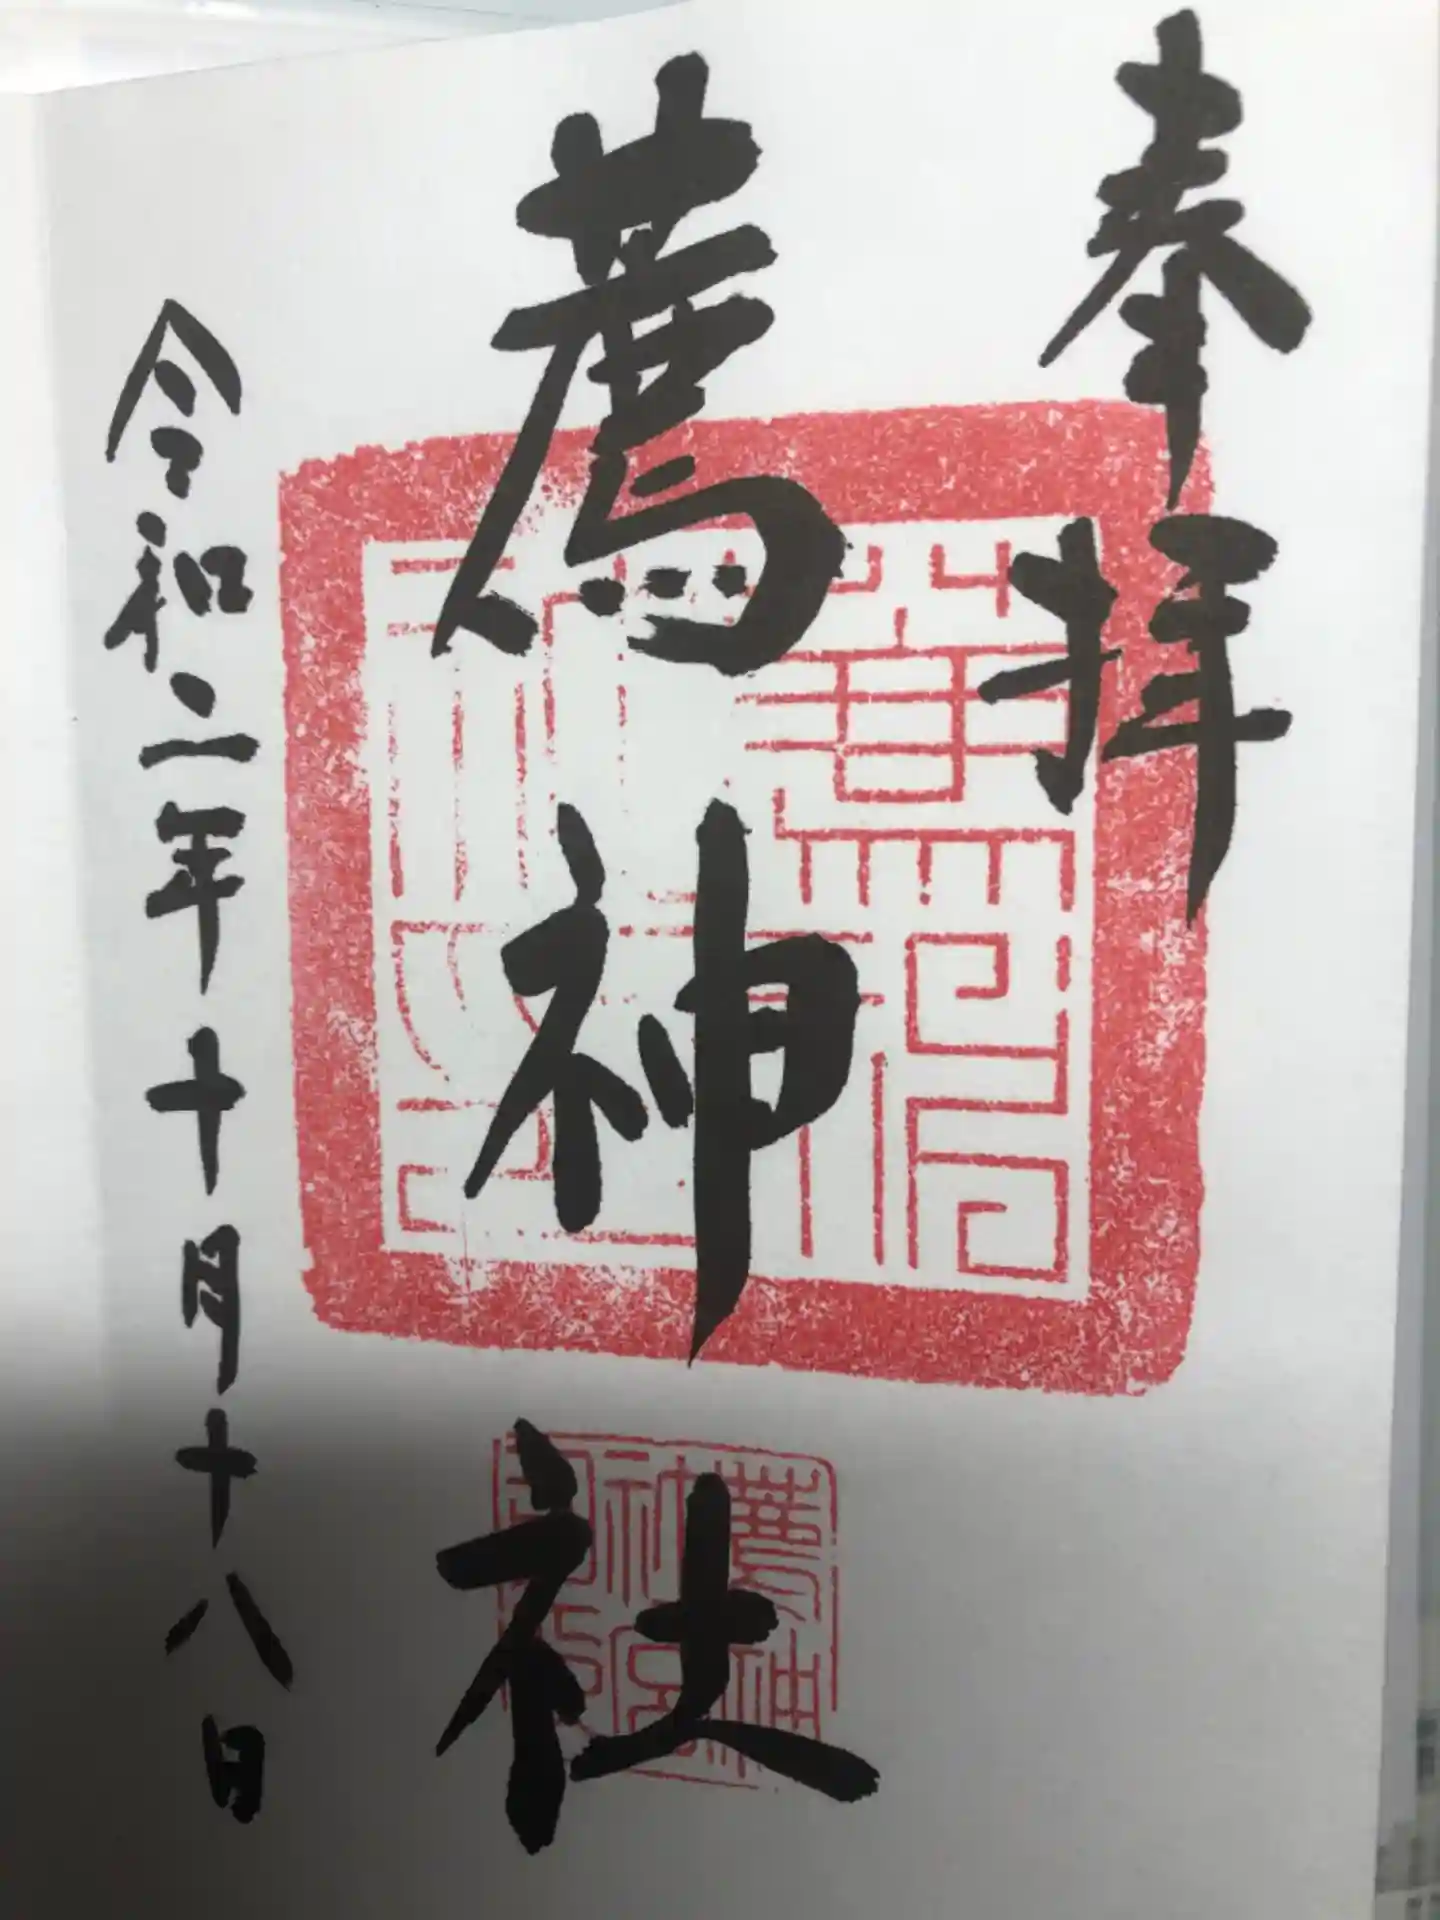 奉拝
薦神社
令和二年十月十八日